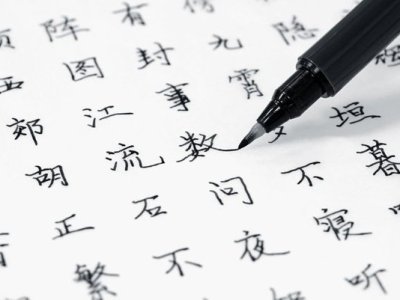 阵有
西图封九隐
郊江事霄
胡流数垣
正石问不暮
繁不夜寝听